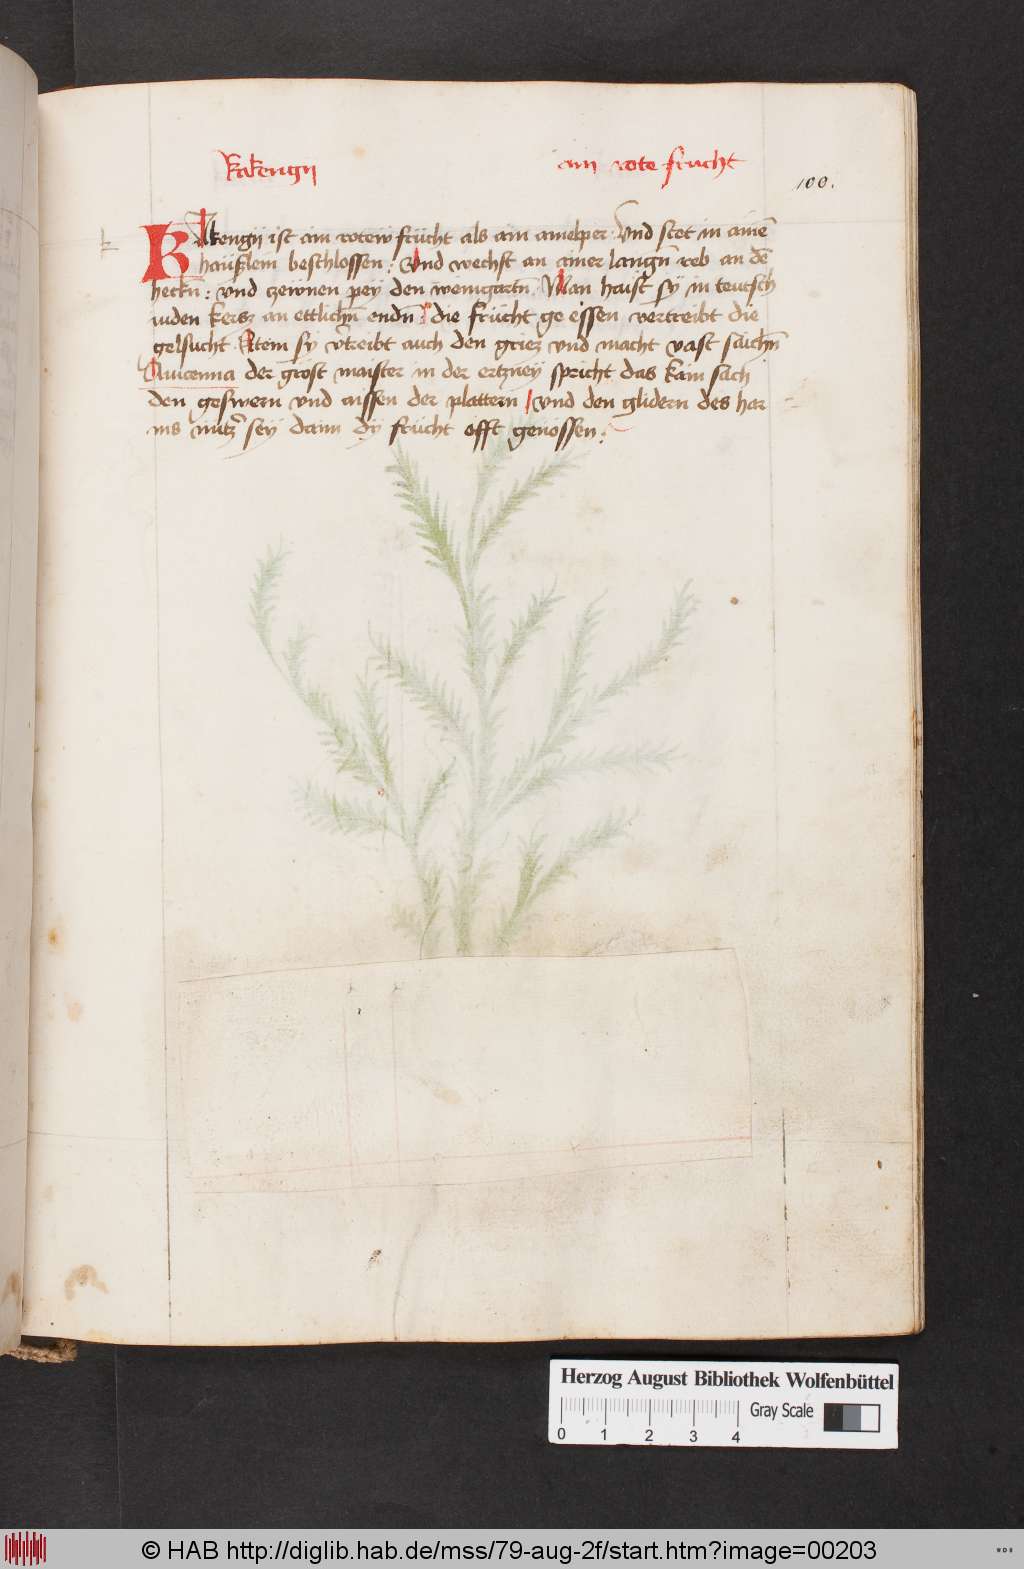 Kakengij
ain rote frucht
100.
k
KAkengij ist ain rotew frücht als ain amelper Vnd stet in aine͞
haüslein beschlossen : Vnd wechst an ainer langn͞ reb an de͞
heckn͞ : vnd zewnen pey den weingartn͞ Man haist sÿ in teutsch
iuden kersz an ettlichn͞ endn͞ : die frücht ge essen vertreibt die
gelsucht Item sÿ v͛treibt auch den griez vnd macht vast säichn͞
Auicenna der gröst maister in der ertzneÿ spricht das kain sach
den geswern vnd aissen der plattern / vnd den glidern des har
ms nutz͛ seÿ dann dÿ frücht offt genossen :
Herzog August Bibliothek Wolfenbüttel
Gray Scale
0 1 2 3 4
© HAB http://diglib.hab.de/mss/79-aug-2f/start.htm?image=00203